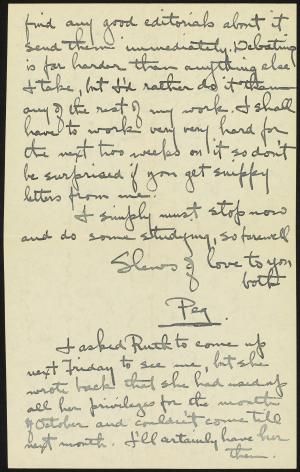 find any good editorials about it
send them immediately. Debating
is far harder than anything else
I take, but I'd rather do it than
any of the rest of my work. I shall
have to work very very hard for
the next two weeks on it so don't
be surprised if you get snippy
letters from me.
I simply must stop now
and do some studying, so farewell
Slews of love to you
both
Peg.
I asked Ruth to come up
next Friday to see me, but she
wrote back that she had used up
all her privileges for the month
of October and couldn't come till
next month. I'll certainly have her
then.